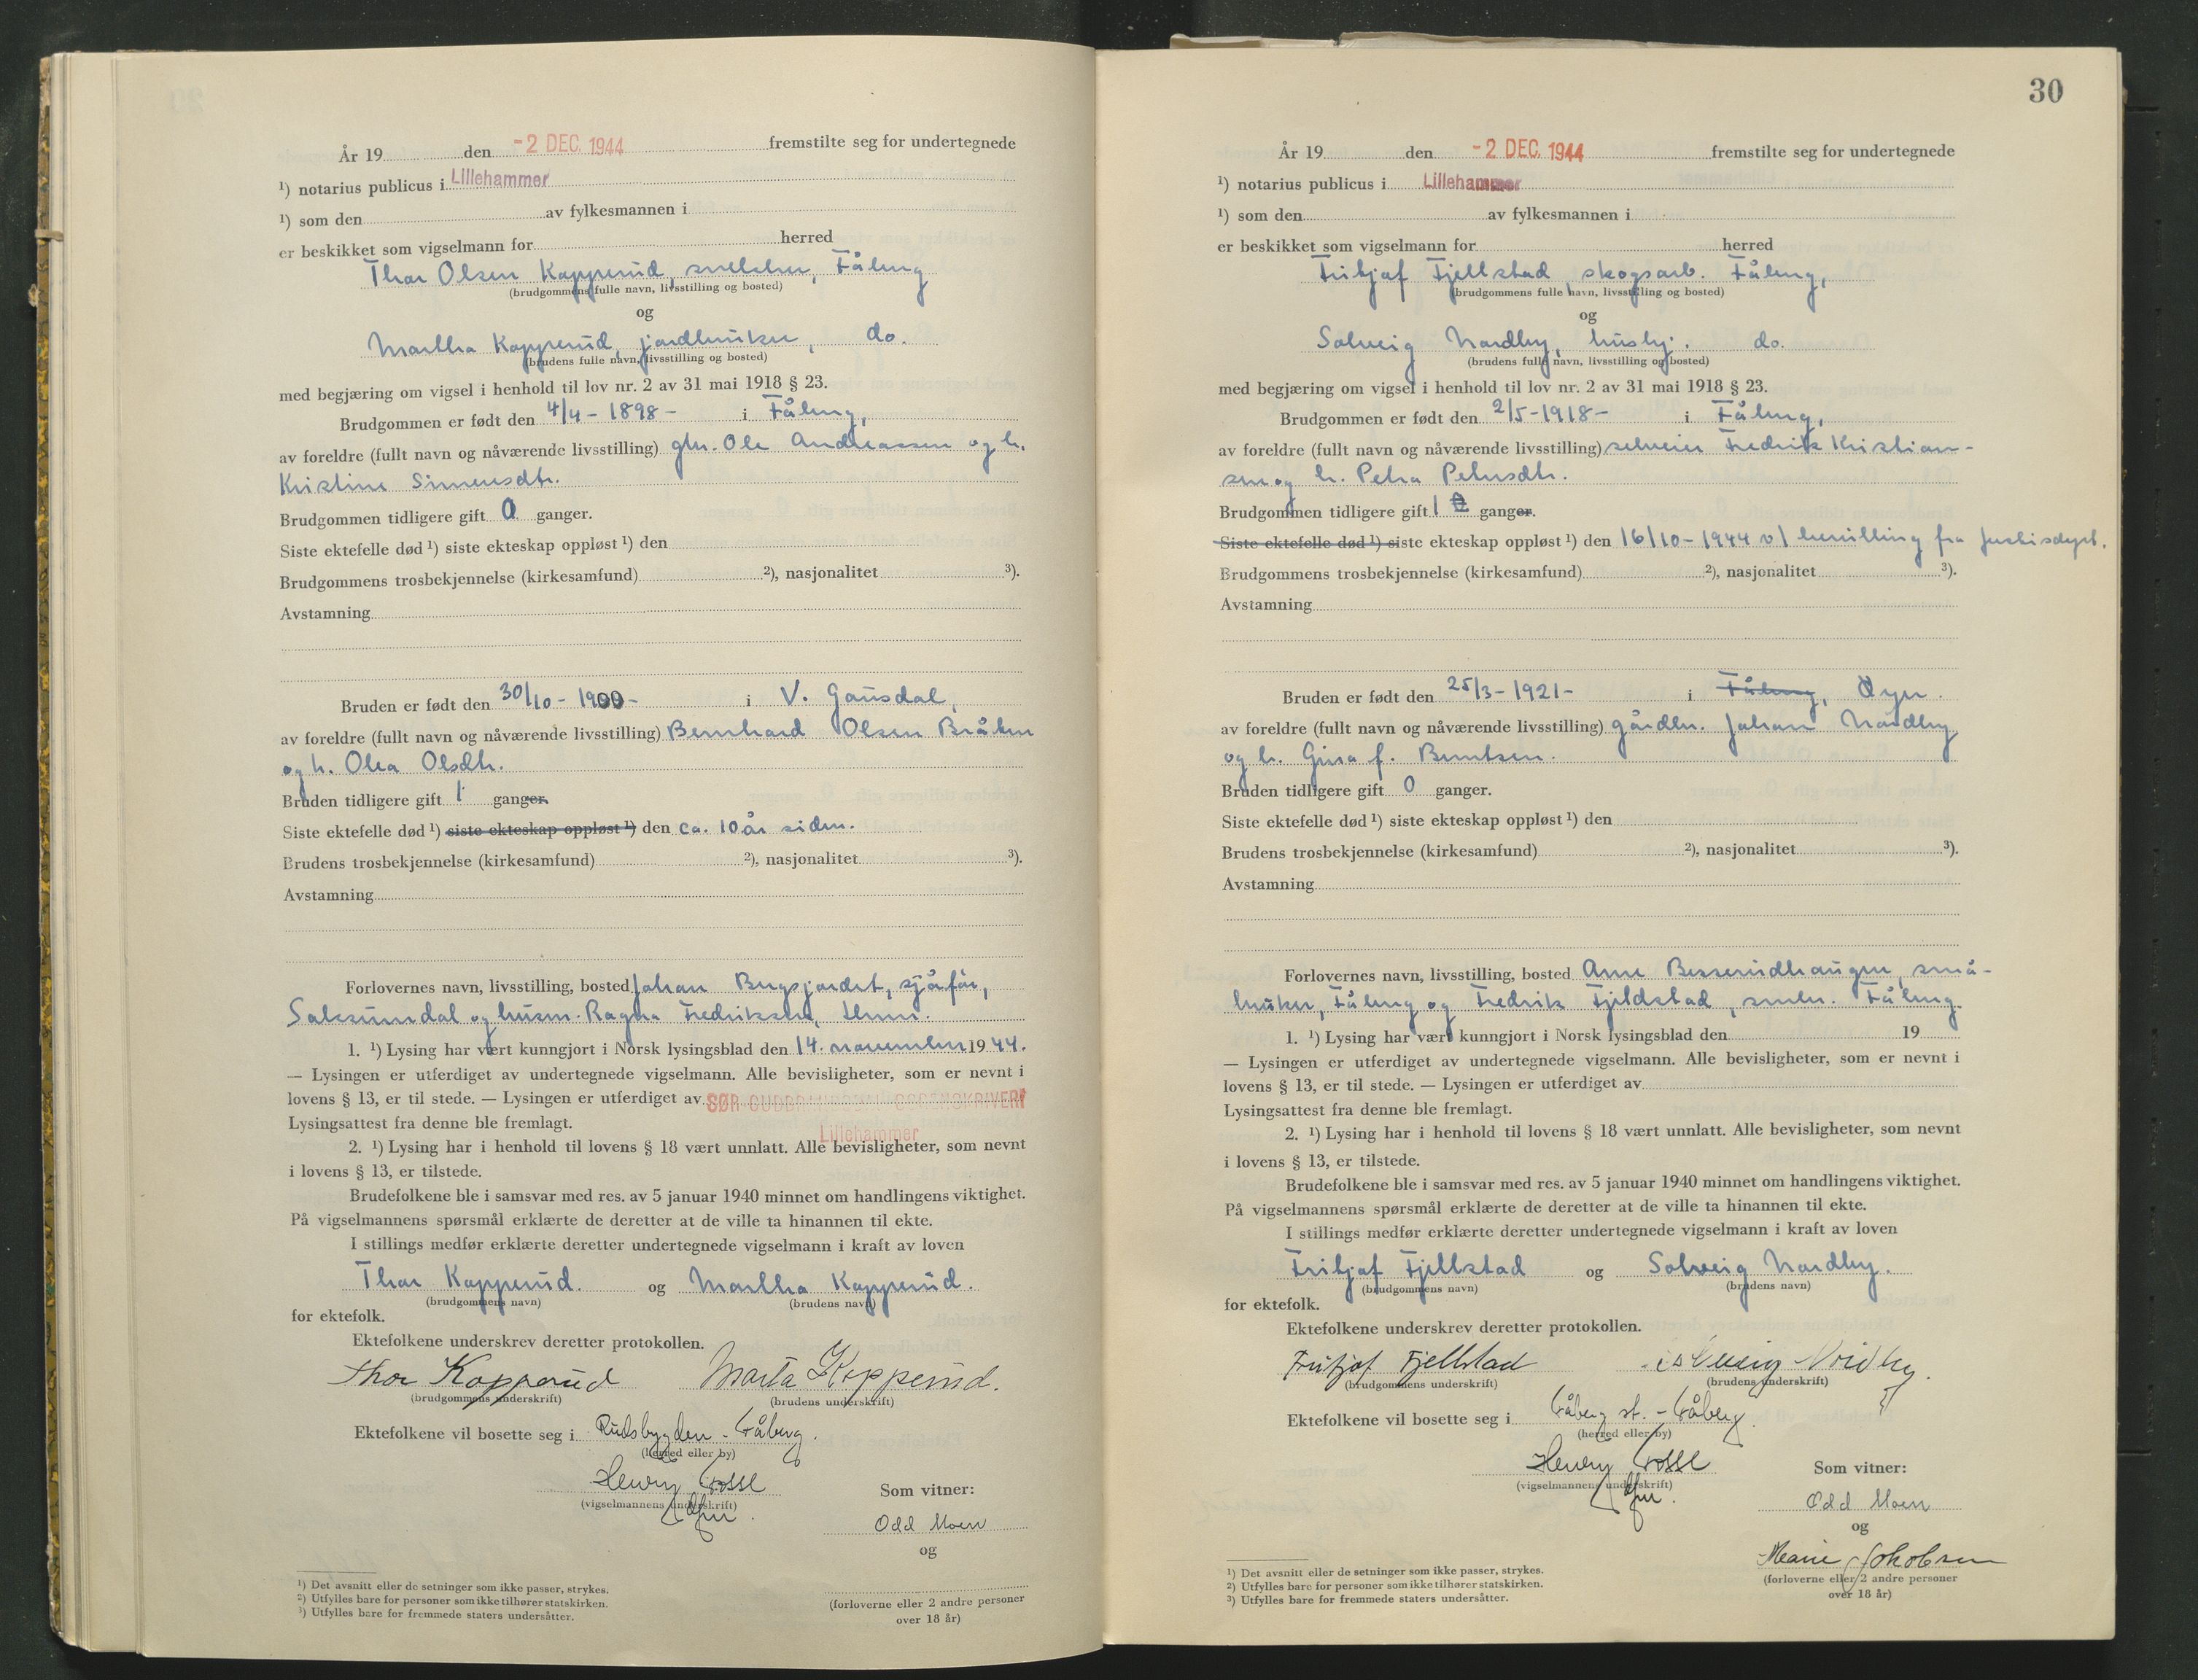 År 19 den -2 DEC. 1944 fremstilte seg for undertegnede
¹) notarius publicus i Lillehammer
¹) som den av fylkesmannen i
er beskikket som vigselmann for herred
Thor Olsen Kopperud, snekker, Fåberg
(brudgommens fulle navn, livsstilling og bosted)
og
Martha Kopperud, jordbruker, do.
(brudens fulle navn, livsstilling og bosted)
med begjæring om vigsel i henhold til lov nr. 2 av 31 mai 1918 § 23.
Brudgommen er født den 4/4 - 1898 - i Fåberg,
av foreldre (fullt navn og nåværende livsstilling) gbr. Ole Andreassen og h.
Kristine Simensdtr.
Brudgommen tidligere gift 0 ganger.
Siste ektefelle død ¹) siste ekteskap oppløst ¹) den
Brudgommens trosbekjennelse (kirkesamfund) ²), nasjonalitet ³).
Avstamning
Bruden er født den 30/10 - 1900 - i V. Gausdal,
av foreldre (fullt navn og nåværende livsstilling) Bernhard Olsen Bråten
og h. Olea Olsdtr.
Bruden tidligere gift 1 ganger.
Siste ektefelle død ¹) siste ekteskap oppløst ¹) den ca. 10 år siden.
Brudens trosbekjennelse (kirkesamfund) ²), nasjonalitet ³).
Avstamning
Forlovernes navn, livsstilling, bosted Johan sjåfør,
Saksumdal og husm. Ragna Fredriksen,
1. ¹) Lysing har vært kunngjort i Norsk lysingsblad den 14. november 1944.
— Lysingen er utferdiget av undertegnede vigselmann. Alle bevisligheter, som er nevnt i
lovens § 13, er til stede. — Lysingen er utferdiget av SØR-GUDBRANDSDAL SORENSKRIVERI
Lysingsattest fra denne ble fremlagt.
Lillehammer
2. ¹) Lysing har i henhold til lovens § 18 vært unnlatt. Alle bevisligheter, som nevnt
i lovens § 13, er tilstede.
Brudefolkene ble i samsvar med res. av 5 januar 1940 minnet om handlingens viktighet.
På vigselmannens spørsmål erklærte de deretter at de ville ta hinannen til ekte.
I stillings medfør erklærte deretter undertegnede vigselmann i kraft av loven
Thor Kopperud. og Martha Kopperud.
(brudgommens navn) (brudens navn)
for ektefolk.
Ektefolkene underskrev deretter protokollen.
Thor Kopperud Marta Kopperud.
(brudgommens underskrift) (brudens underskrift)
Ektefolkene vil bosette seg i Rudsbygden - Fåberg.
(herred eller by)
Henry Fosse
(vigselmannens underskrift)
Som vitner:
Odd Moen
og
(forloverne eller 2 andre personer
over 18 år)
¹) Det avsnitt eller de setninger som ikke passer, strykes.
²) Utfylles bare for personer som ikke tilhører statskirken.
³) Utfylles bare for fremmede staters undersåtter.
30
År 19 den -2 DEC. 1944 fremstilte seg for undertegnede
¹) notarius publicus i Lillehammer
¹) som den av fylkesmannen i
er beskikket som vigselmann for herred
Fritjof Fjellstad, skogsarb. Fåberg,
(brudgommens fulle navn, livsstilling og bosted)
og
Solveig Nordby, husbj. do.
(brudens fulle navn, livsstilling og bosted)
med begjæring om vigsel i henhold til lov nr. 2 av 31 mai 1918 § 23.
Brudgommen er født den 2/5 - 1918 - i Fåberg,
av foreldre (fullt navn og nåværende livsstilling) selveier Fredrik Kristian-
sen og h. Petra Petersdtr.
Brudgommen tidligere gift 1 0 ganger.
Siste ektefelle død ¹) siste ekteskap oppløst ¹) den 16/10 - 1944 v/ bevilling fra Justisdept.
Brudgommens trosbekjennelse (kirkesamfund) ²), nasjonalitet ³).
Avstamning
Bruden er født den 25/3 - 1921 - i Fåberg, Øyer.
av foreldre (fullt navn og nåværende livsstilling) gårdbr. Johan Nordby
og h. Gina f. Berntsen.
Bruden tidligere gift 0 ganger.
Siste ektefelle død ¹) siste ekteskap oppløst ¹) den
Brudens trosbekjennelse (kirkesamfund) ²), nasjonalitet ³).
Avstamning
Forlovernes navn, livsstilling, bosted Arne Besserudhaugen, små-
bruker, Fåberg og Fredrik Fjeldstad, småbr. Fåberg.
1. ¹) Lysing har vært kunngjort i Norsk lysingsblad den 19
— Lysingen er utferdiget av undertegnede vigselmann. Alle bevisligheter, som er nevnt i
lovens § 13, er til stede. — Lysingen er utferdiget av
Lysingsattest fra denne ble fremlagt.
2. ¹) Lysing har i henhold til lovens § 18 vært unnlatt. Alle bevisligheter, som nevnt
i lovens § 13, er tilstede.
Brudefolkene ble i samsvar med res. av 5 januar 1940 minnet om handlingens viktighet.
På vigselmannens spørsmål erklærte de deretter at de ville ta hinannen til ekte.
I stillings medfør erklærte deretter undertegnede vigselmann i kraft av loven
Fritjof Fjellstad og Solveig Nordby.
(brudgommens navn) (brudens navn)
for ektefolk.
Ektefolkene underskrev deretter protokollen.
Fritjof Fjellstad Solveig Nordby.
(brudgommens underskrift) (brudens underskrift)
Ektefolkene vil bosette seg i Fåberg st. - Fåberg.
(herred eller by)
Henry Fosse
(vigselmannens underskrift)
Som vitner:
Odd Moen
og
Marie Jakobsen
(forloverne eller 2 andre personer
over 18 år)
¹) Det avsnitt eller de setninger som ikke passer, strykes.
²) Utfylles bare for personer som ikke tilhører statskirken.
³) Utfylles bare for fremmede staters undersåtter.